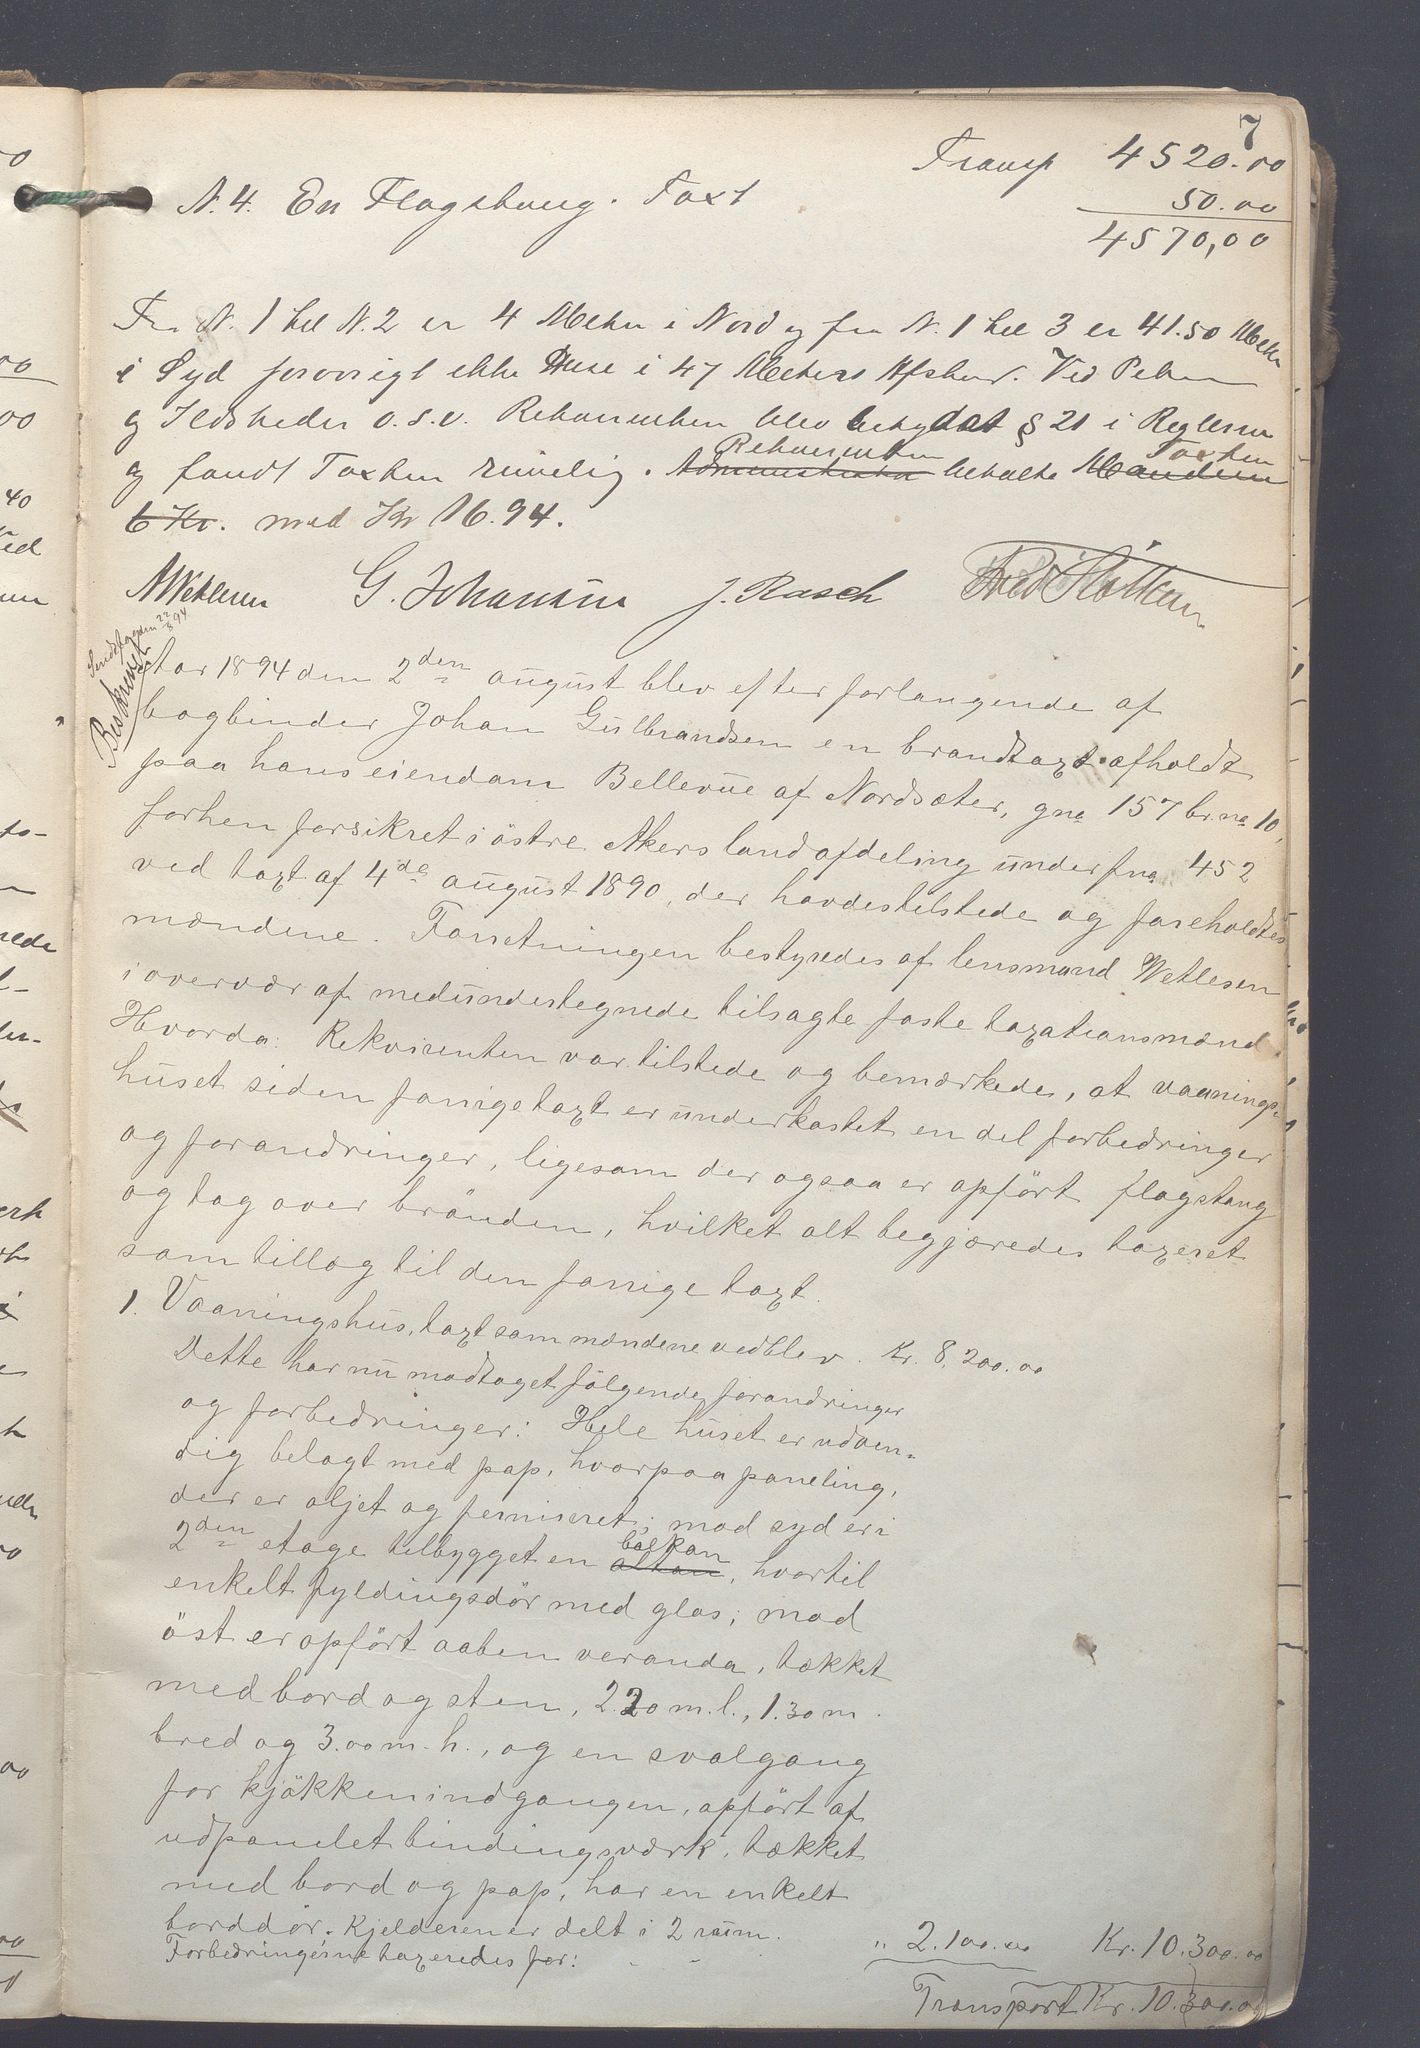 7
Transp 4520.00
N. 4. En Flagstang. Taxt 50.00
4570,00
Fra N. 1 til N. 2 er 4 Meter i Nord og fra N. 1 til 3 er 41.50 Meter
i Syd forøvrigt ikke Huse i 47 Meters Afstand. Ved Peber
og Ildsteder o.s.v. Rekvirenten blev betydet § 21 i Reglerne
og fandt Taxten rimelig. Administrator Rekvirenten betalte Mændene Taxten
6 Kr. med Kr 16.94.
AWetlesen G. Johansen J. Rasch Fred
Beskrevet
Aar 1894 den 2den august blev efter forlangende af
bogbinder Johan Gulbrandsen en brandtaxt afholdt
paa hans eiendom Bellevue af Nordsæter, gno 157 br.no 10,
forhen forsikret i östre Akers landafdeling under fno 452
ved taxt af 4de august 1890, der havdes tilstede og foreholdtes
mændene. Forretningen bestyredes af lensmand Wetlesen
i overvær af medundertegnede tilsagte faste taxationsmænd.
Hvorda: Rekvirenten var tilstede og bemærkede, at vaanings-
huset siden forrige taxt er underkastet en del forbedringer
og forandringer, ligesom der ogsaa er opfört flagstang
og tag over brönden, hvilket alt begjæredes taxeret
som tillæg til den forrige taxt.
1. Vaaningshus, taxt som mændene vedblev. Kr. 8,200.00
Dette har nu modtaget fölgende forandringer
og forbedringer: Hele huset er udven-
dig belagt med pap, hvorpaa paneling,
der er oljet og ferniseret; mod syd er i
2den etage tilbygget en altan balkon, hvortil
enkelt fyldingsdör med glas; mod
öst er opfört aaben veranda, tækket
med bord og sten, 2.20 m. l., 1.30 m.
bred og 3.00 m. h., og en svalgang
for kjökkenindgangen, opfört af
udpanelet bindingsværk, tækket
med bord og pap, har en enkelt
borddör. Kjelderen er delt i 2 rum.
Forbedringerne taxeredes for: - - " 2.100.00 Kr. 10.300.00
Transport Kr. 10.300.00